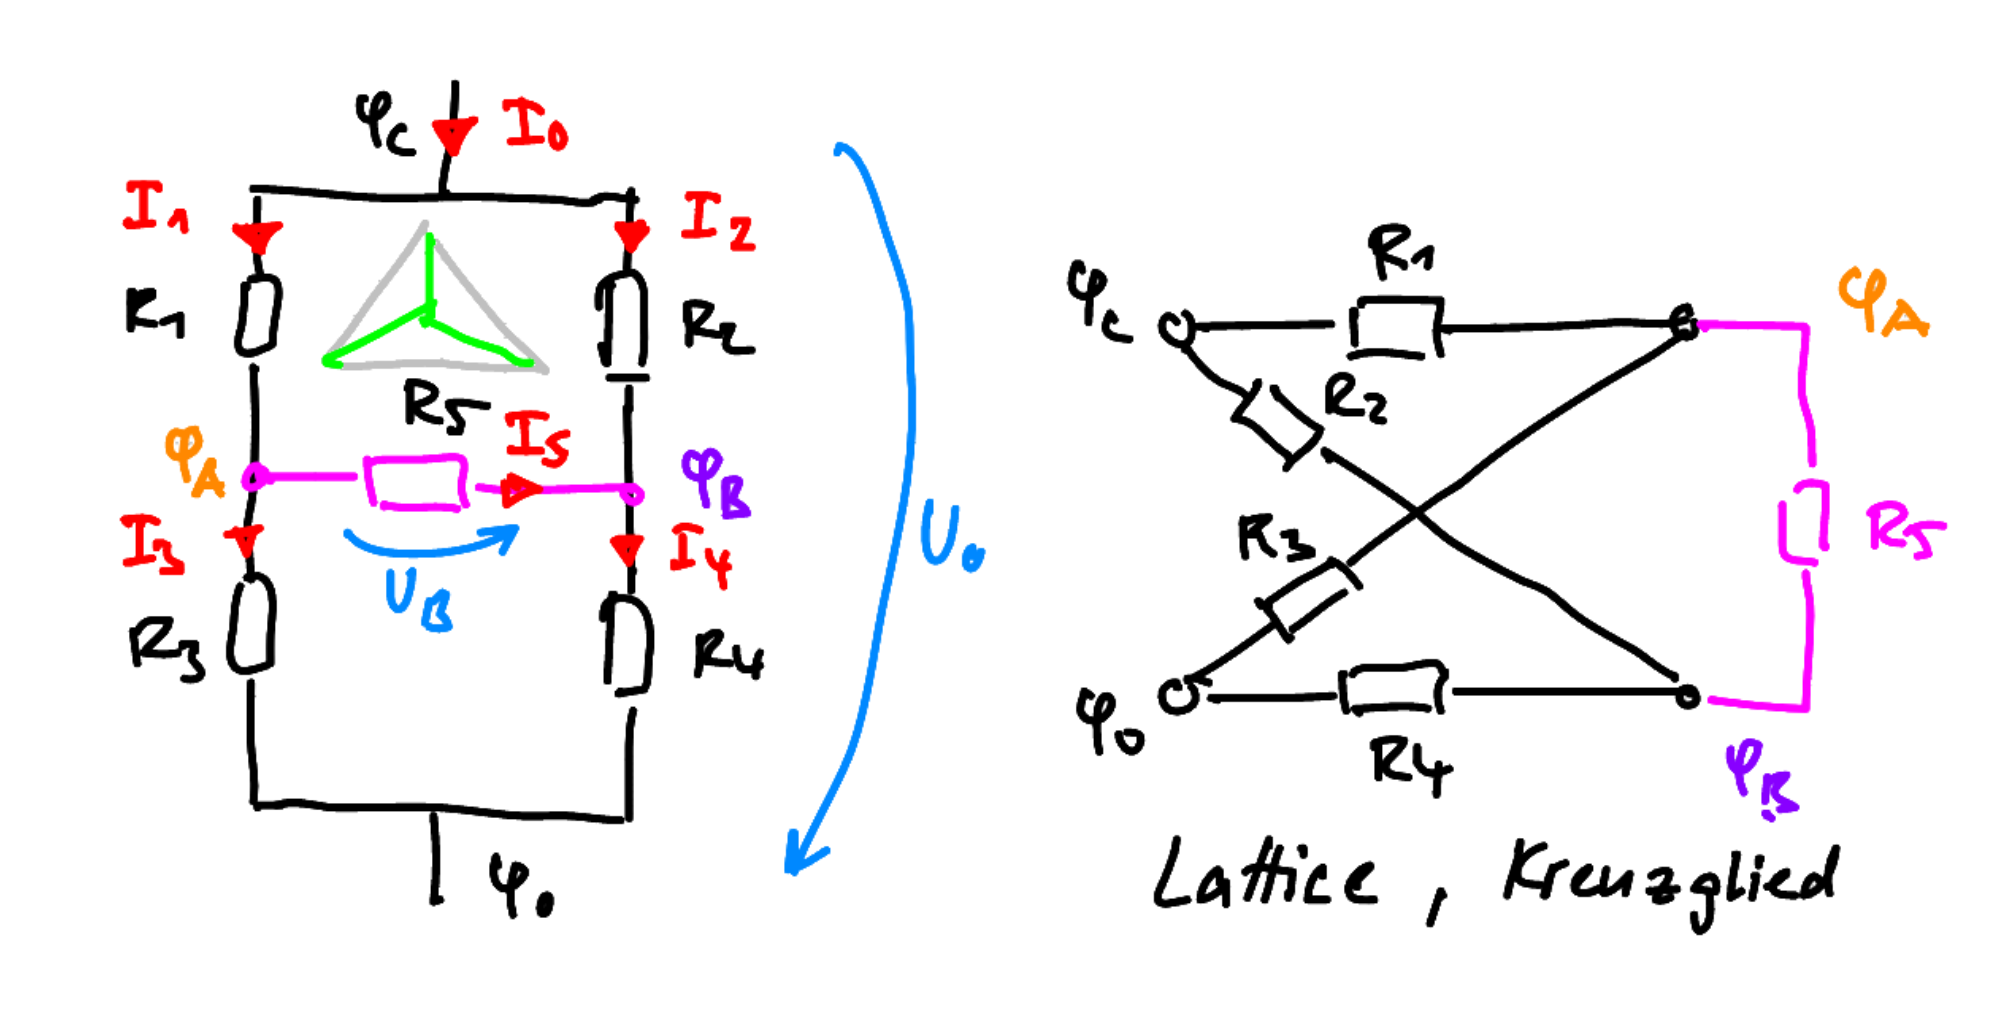 φC I0
I1 I2
R1 R2
R5
φA I5 φB
I3 I4
UB
R3 R4
φ0
U0
φC R1 φA
R2
R3 R5
φ0 R4 φB
Lattice, Kreuzglied